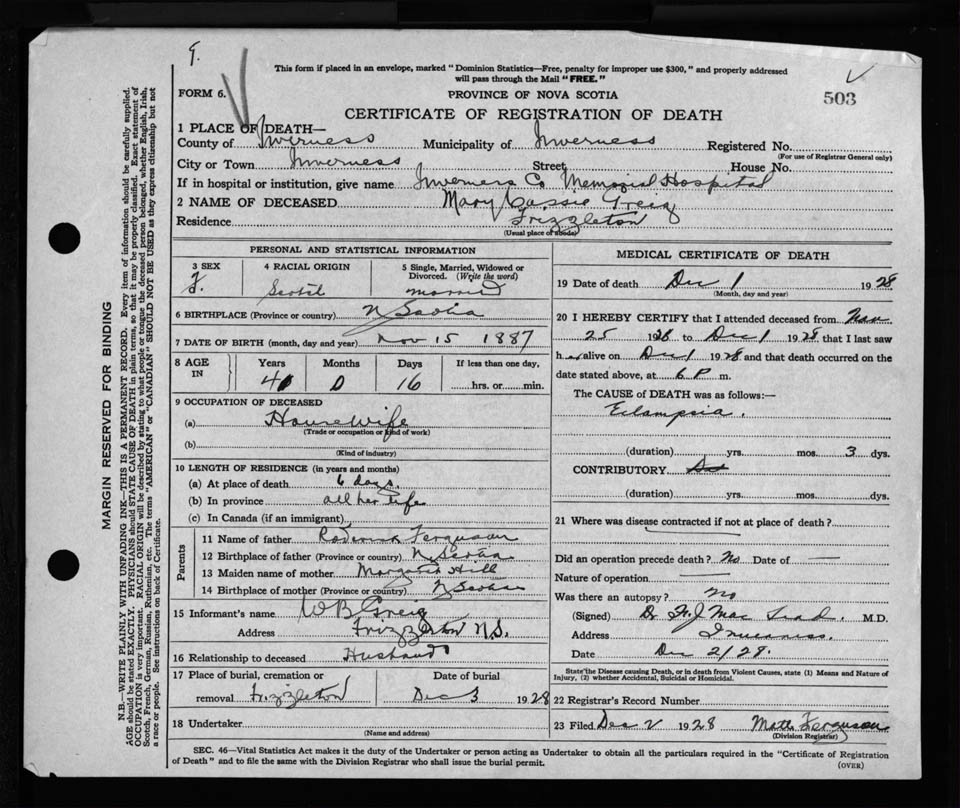 9.
This form if placed in an envelope, marked "Dominion Statistics—Free, penalty for improper use $300," and properly addressed
will pass through the Mail "FREE."
FORM 6.
PROVINCE OF NOVA SCOTIA
503
CERTIFICATE OF REGISTRATION OF DEATH
1 PLACE OF DEATH—
County of Inverness Municipality of Inverness Registered No.
(For use of Registrar General only)
City or Town Inverness Street House No.
If in hospital or institution, give name Inverness Co Memorial Hospital
2 NAME OF DECEASED Mary Cassie Greig
Residence Frizzleton
(Usual place of abode)
PERSONAL AND STATISTICAL INFORMATION
3 SEX 4 RACIAL ORIGIN 5 Single, Married, Widowed or
Divorced. (Write the word)
F. Scotch married
6 BIRTHPLACE (Province or country) N Scotia
7 DATE OF BIRTH (month, day and year) Nov 15 1887
8 AGE IN Years Months Days If less than one day,
0 16 hrs. or min.
9 OCCUPATION OF DECEASED
(a) Housewife
(Trade or occupation or kind of work)
(b)
(Kind of industry)
10 LENGTH OF RESIDENCE (in years and months)
(a) At place of death 6 days.
(b) In province all her life
(c) In Canada (if an immigrant)
Parents
11 Name of father Roderick Ferguson
12 Birthplace of father (Province or country) N. Scotia
13 Maiden name of mother Margaret Hill
14 Birthplace of mother (Province or country) N Scotia
15 Informant's name W B Greig
Address Frizzleton N.S.
16 Relationship to deceased Husband
17 Place of burial, cremation or Date of burial
removal Frizzleton Dec 3 1928
18 Undertaker
(Name and address)
MEDICAL CERTIFICATE OF DEATH
19 Date of death Dec 1 1928
(Month, day and year)
20 I HEREBY CERTIFY that I attended deceased from Nov
25 1928 to Dec 1 1928 that I last saw
her alive on Dec 1 1928 and that death occurred on the
date stated above, at 6 P m.
The CAUSE of DEATH was as follows:—
Eclampsia.
(duration) yrs. mos. 3 dys.
CONTRIBUTORY
(duration) yrs. mos. dys.
21 Where was disease contracted if not at place of death?
Did an operation precede death? No Date of —
Nature of operation —
Was there an autopsy? No
(Signed) Dr M.D.
Address Inverness.
Date Dec 2/28.
State the Disease causing Death, or in death from Violent Causes, state (1) Means and Nature of
Injury, (2) whether Accidental, Suicidal or Homicidal.
22 Registrar's Record Number
23 Filed Dec 2 1928 Ferguson
(Division Registrar)
SEC. 46—Vital Statistics Act makes it the duty of the Undertaker or person acting as Undertaker to obtain all the particulars required in the "Certificate of Registration
of Death" and to file the same with the Division Registrar who shall issue the burial permit.
(OVER)
MARGIN RESERVED FOR BINDING
N.B.—WRITE PLAINLY WITH UNFADING INK—THIS IS A PERMANENT RECORD. Every item of information should be carefully supplied.
AGE should be stated EXACTLY. PHYSICIANS should STATE CAUSE OF DEATH in plain terms, so that it may be properly classified. Exact statement of
OCCUPATION is very important. RACIAL ORIGIN will be described by stating to what people or tongue the deceased person belonged, whether English, Irish,
Scotch, French, German, Russian, Ruthenian, etc. The terms "AMERICAN" or "CANADIAN" SHOULD NOT BE USED as they express citizenship but not
a race or people. See instructions on back of Certificate.